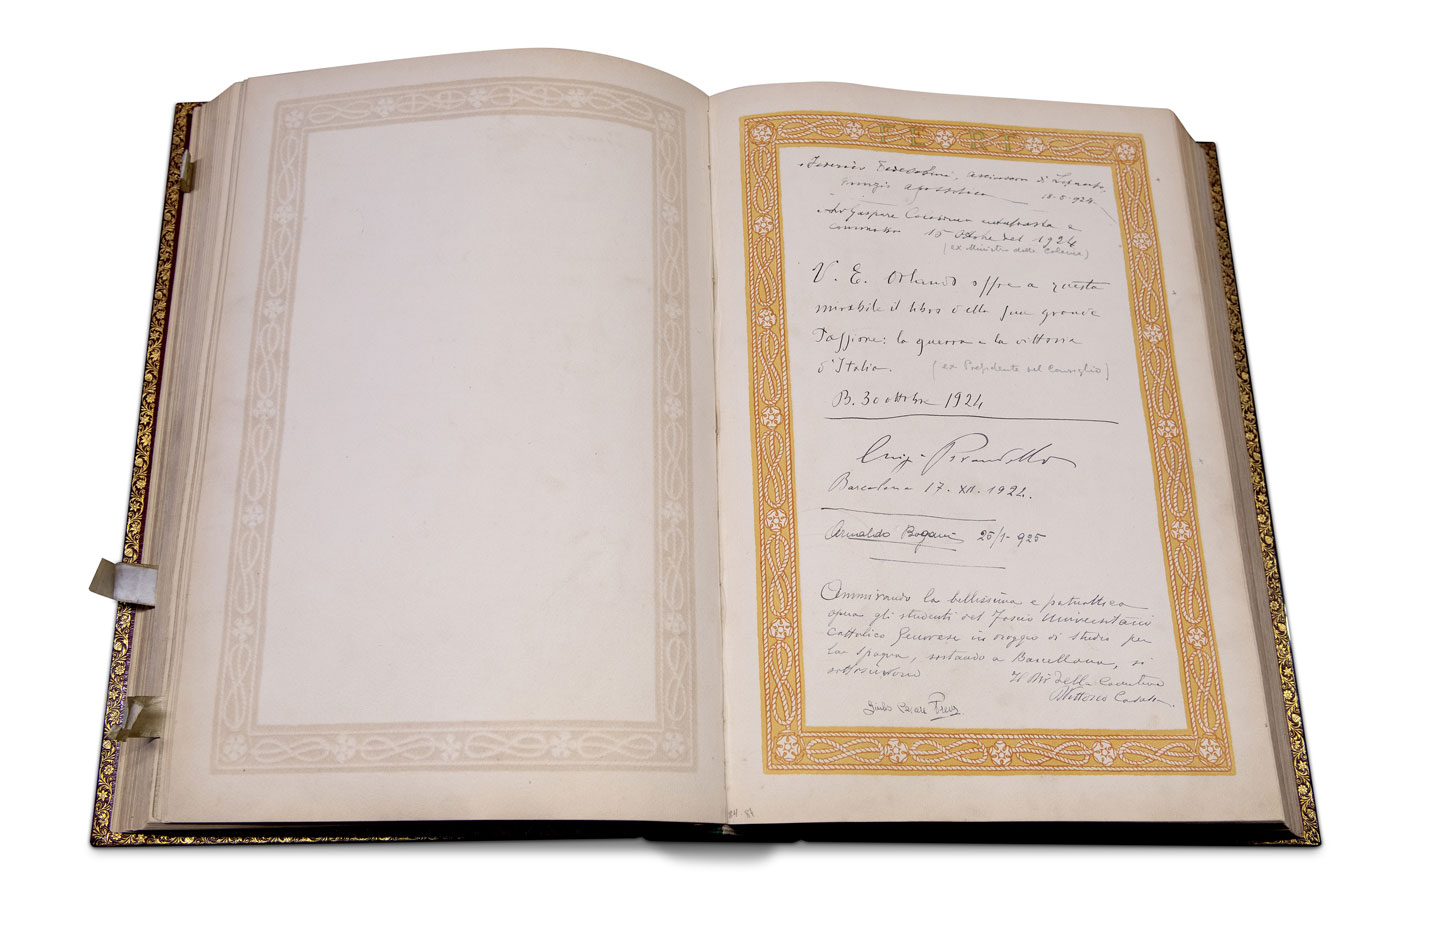 FERT
Federico Tedeschini, Arcivescovo di Lepanto,
Nunzio Apostolico 18-5-924.
Gaspare Colosimo e
15 Ottobre del 1924
(ex Ministro delle Colonie)
V. E. Orlando offre a questo
mirabile il libro della sua grande
Passione: la guerra e la vittoria
d'Italia. (ex Presidente del Consiglio)
B. 30 ottobre 1924
Luigi Pirandello
Barcelona 17. XII. 1924.
Arnaldo 25/1-925
Ammirando la bellissima e patriottica
opera gli studenti del Fascio Universitario
Cattolico Genovese in viaggio di studio per
la Spagna, sostando a Barcellona, si
sottoscrivono
Vittorio